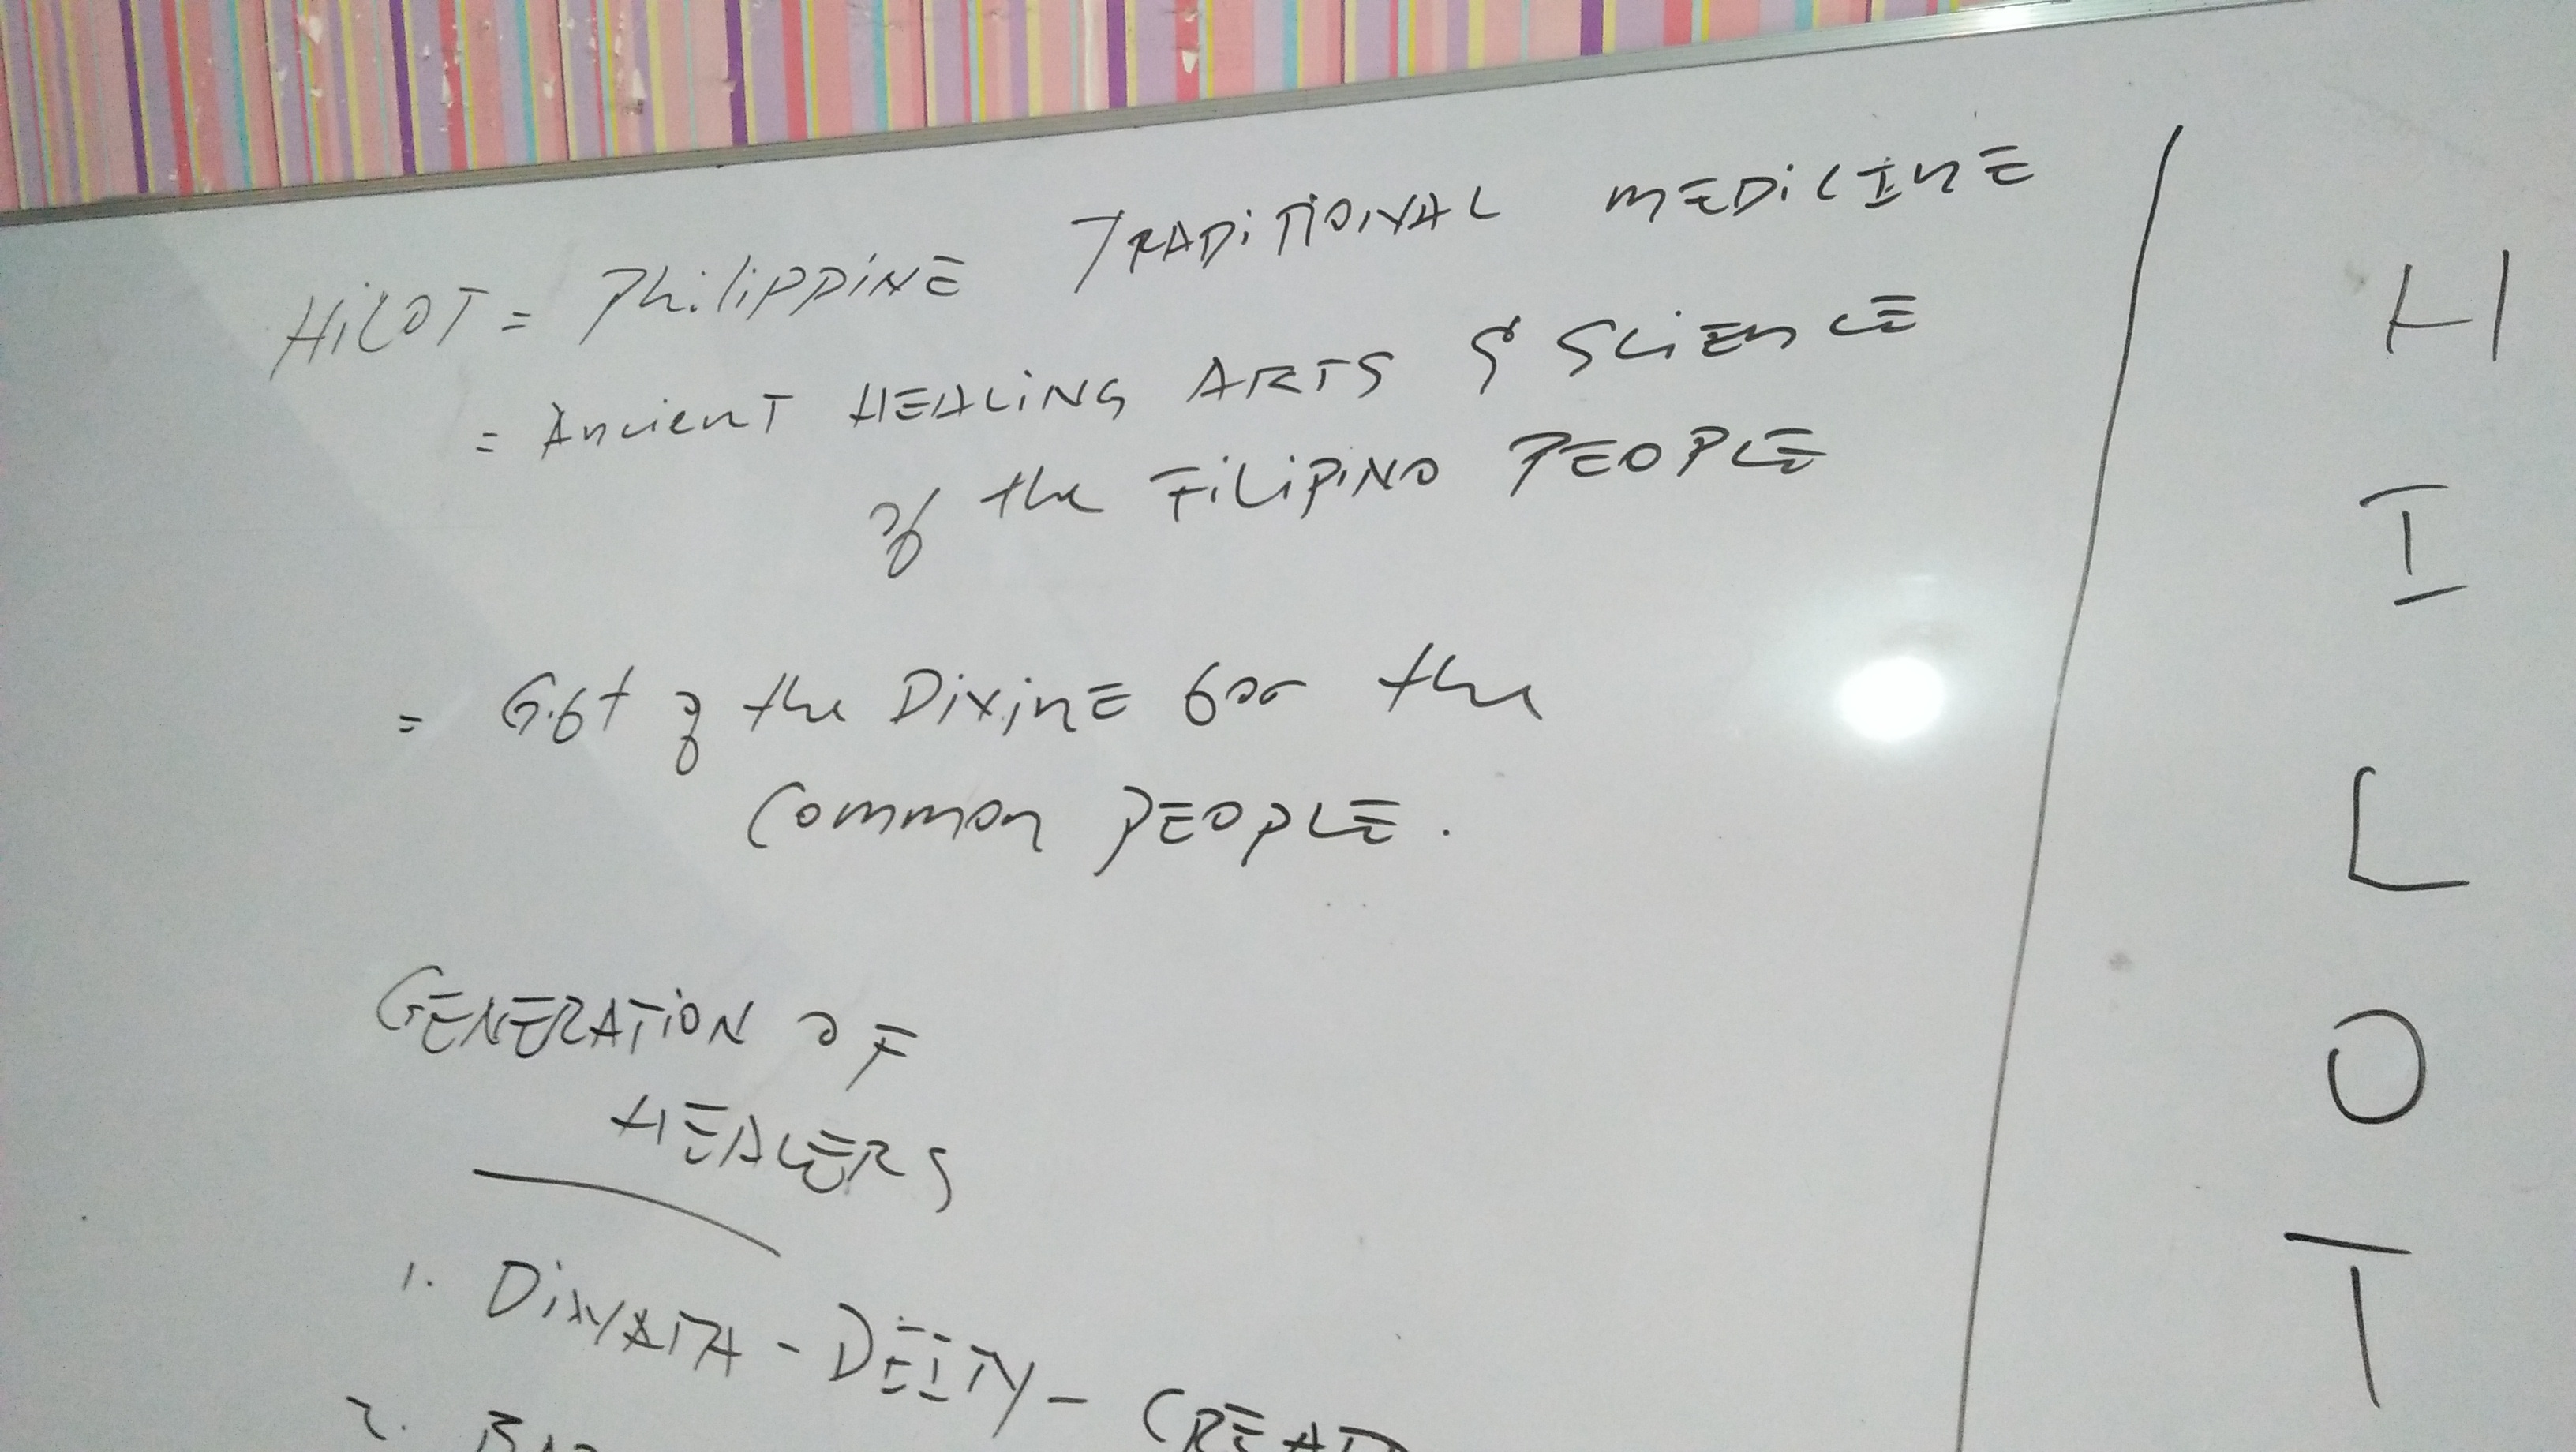 HILOT = PhiliPPiNE TRADiTiONAL MEDiCINE
= Ancient HEALiNG ARTS & SCiEnCE
of the FiLiPiNO PEOPLE
= Gift of the DiVinE for the
Common PEOPLE.
GENERATiON OF
HEALERS
1. DiWATA - DEITY -
2.
H
I
L
O
T